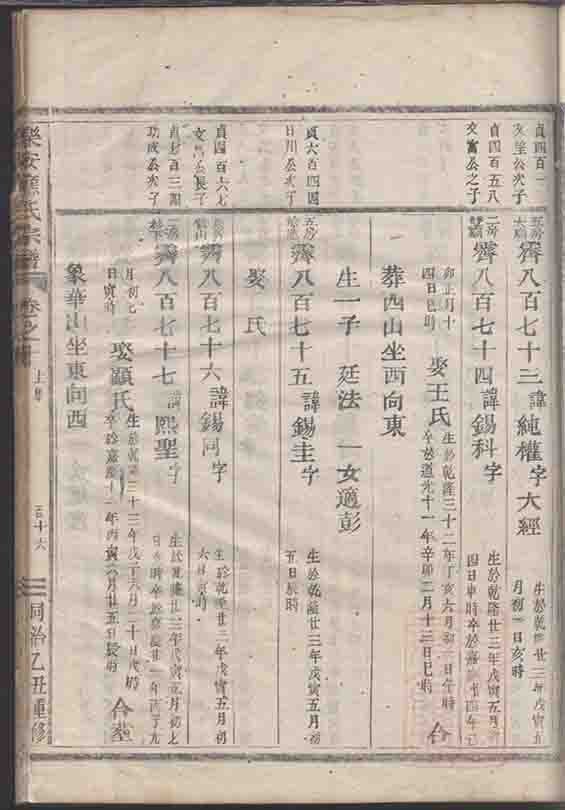 貞四百一
文堂公次子
五房
齊八百七十三諱純權字大經
生於乾隆廿三年戊寅五
月初一日亥時
貞四百五八
文富公之子
二房
齊八百七十四諱錫科字
生於乾隆廿三年戊寅五月
四日申時卒於嘉慶十四年己
卯正月十
四日巳時
娶王氏
生於乾隆三十二年丁亥六月初三日午時
卒於道光十一年辛卯二月十三日巳時
合
葬西山坐西向東
生一子 廷法 一女適彭
貞六百四四
日川公次子
五房
齊八百七十五諱錫圭字
生於乾隆廿三年戊寅五月初
五日辰時
娶 氏
貞四百六七
公長子
齊八百七十六諱錫同字
生於乾隆廿三年戊寅五月初
六日 時
貞 百三
功成公次子
二房
齊八百七十七諱熙聖字
生於乾隆廿三年戊寅五月初七
日 時卒於嘉慶 一年丙子九
月初七
日寅時
娶顧氏
生於乾隆三十三年戊子六月二十日戌時
卒於嘉慶十一年丙寅 月廿五日辰時
合葬
象華山坐東向西
樂安 氏宗譜
卷之
上
百十六
同治乙丑重修